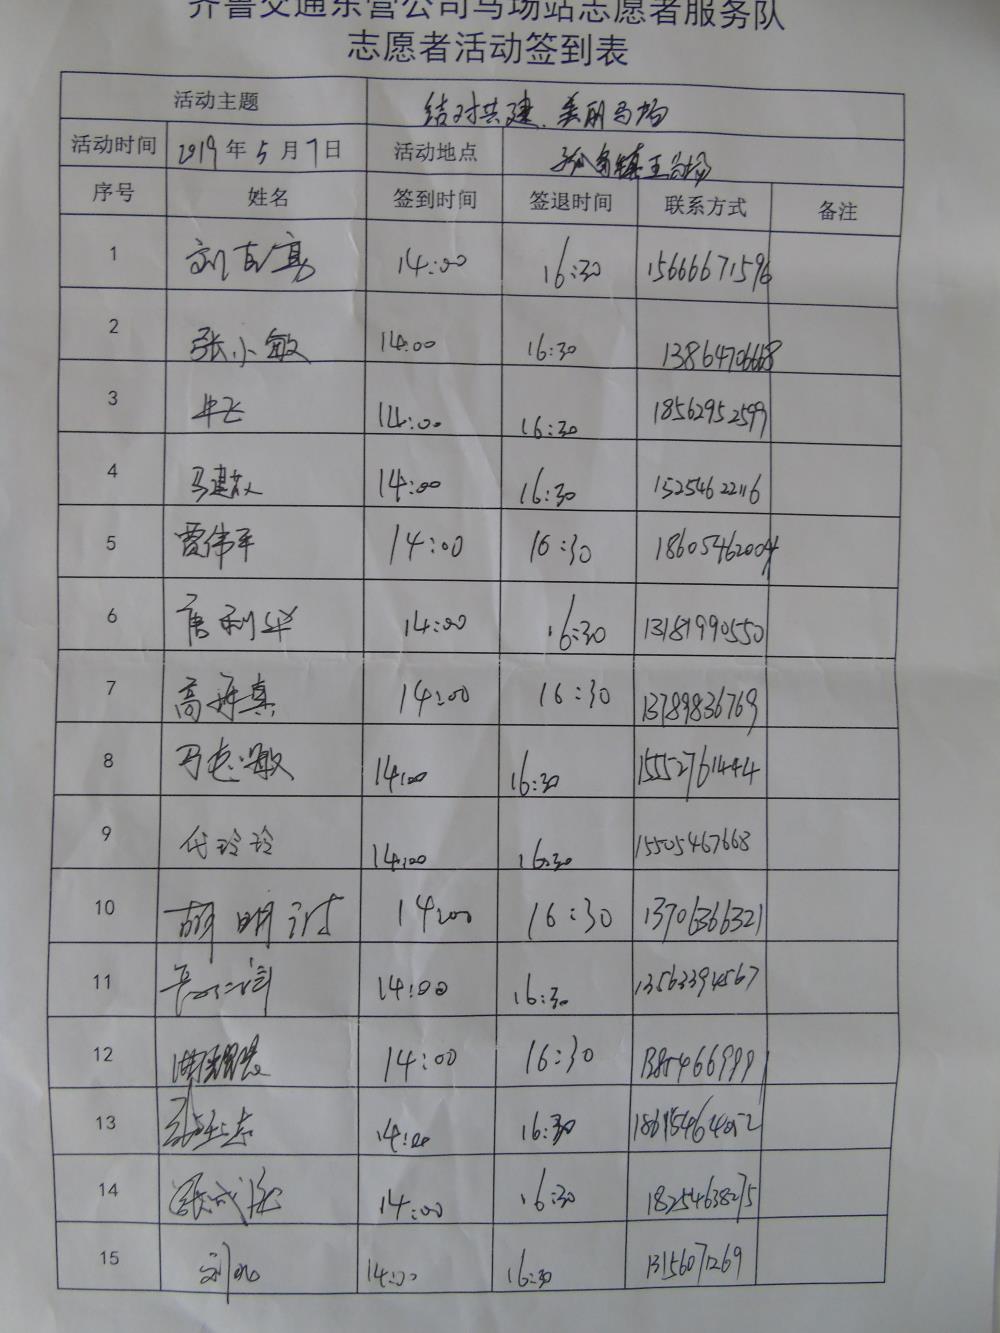 齐鲁交通东营公司马场站志愿者服务队
志愿者活动签到表
活动主题 结对共建、美丽马场
活动时间 2019年5月7日 活动地点 镇王
序号 姓名 签到时间 签退时间 联系方式 备注
1 刘 勇 14:00 16:30 15666671596
2 张小敏 14:00 16:30 13864706668
3 牛飞 14:00 16:30 18562952599
4 马建 14:00 16:30 15254622116
5 贾伟平 14:00 16:30 18605462004
6 唐利华 14:00 16:30 13181990550
7 高再真 14:00 16:30 13789836769
8 马志敏 14:00 16:30 15552761444
9 代玲玲 14:00 16:30 15505467668
10 胡明 14:00 16:30 13706366321
11 14:00 16:30 13563394567
12 14:00 16:30
13 14:00 16:30
14 张成 14:00 16:30 18254638275
15 刘 14:00 16:30 13156071269